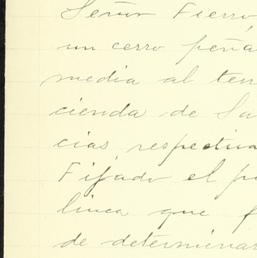 Señor Fierro
un cerro peña
media al ter
cienda de Sa
cias, respectiva
Fijado el p
linea que f
de determinar